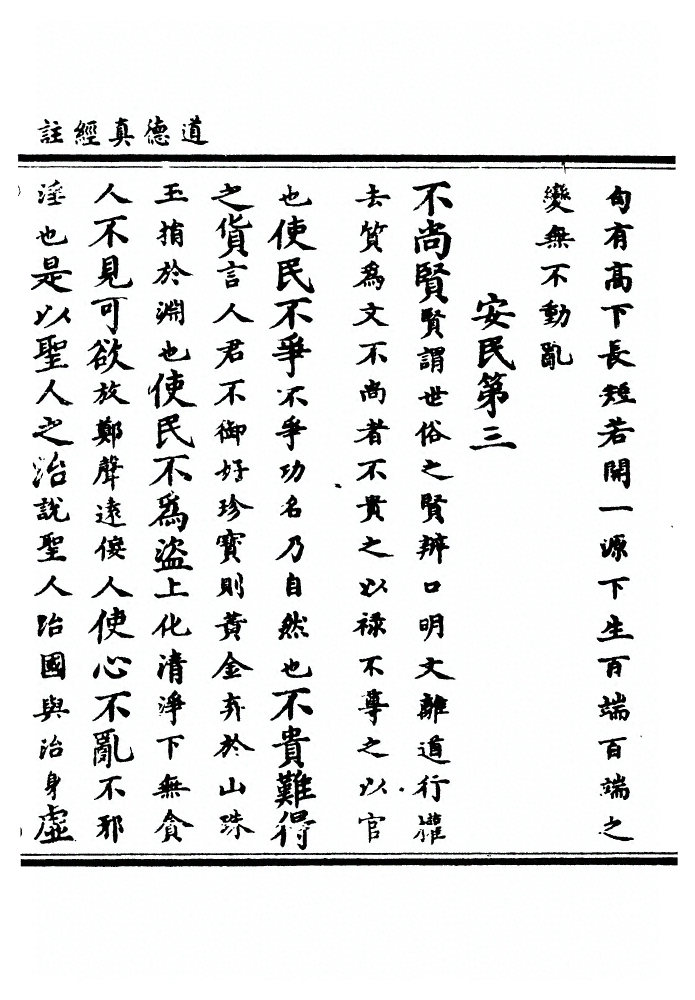 道德真經註
句有高下長短若開一源下生百端百端之
變無不動亂
安民第三
不尚賢賢謂世俗之賢辨口明文離道行權
去質為文不尚者不貴之以祿不尊之以官
也使民不爭不爭功名乃自然也不貴難得
之貨言人君不御好珍寶則黃金弃於山珠
玉捐於淵也使民不為盜上化清淨下無貪
人不見可欲放鄭聲遠佞人使心不亂不邪
淫也是以聖人之治說聖人治國與治身虛